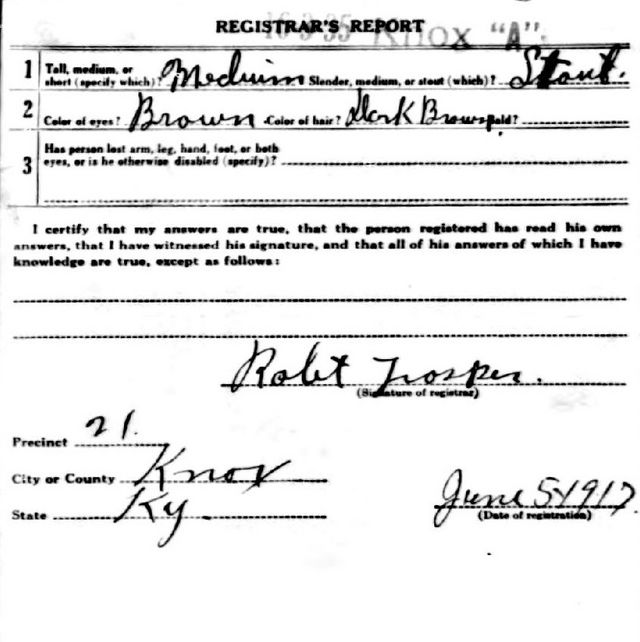 REGISTRAR'S REPORT
16-3-35 Knox "A"
1 Tall, medium, or short (specify which)? Medium Slender, medium, or stout (which)? Stout.
2 Color of eyes? Brown Color of hair? Dark Brown Bald?
3 Has person lost arm, leg, hand, foot, or both
eyes, or is he otherwise disabled (specify)?
I certify that my answers are true, that the person registered has read his own
answers, that I have witnessed his signature, and that all of his answers of which I have
knowledge are true, except as follows:
Robt Trosper.
(Signature of registrar)
Precinct 21.
City or County Knox
State Ky.
June 5-1917.
(Date of registration)